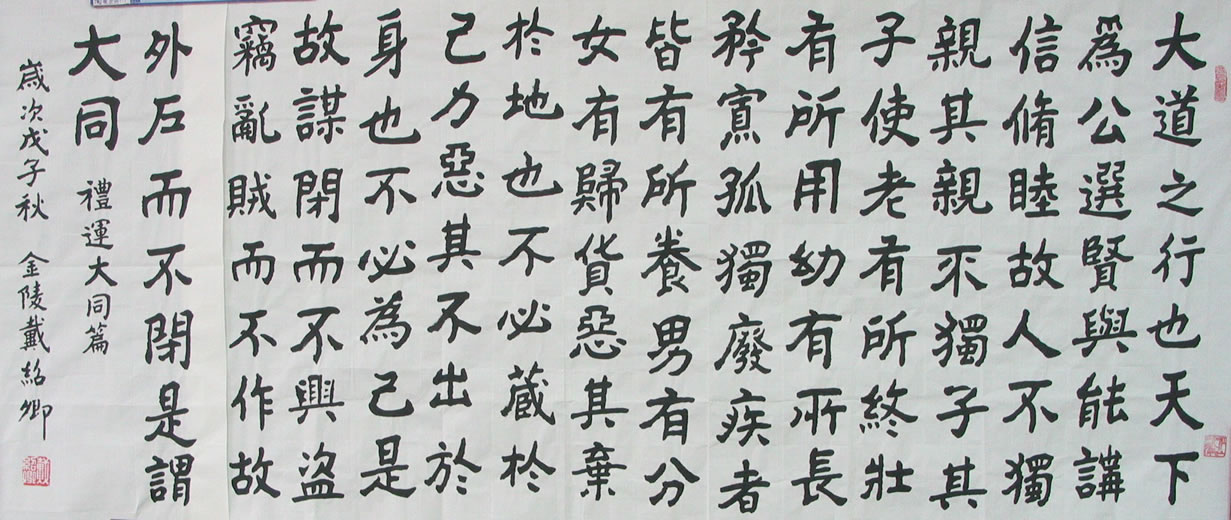 大道之行也天下
爲公選賢與能講
信脩睦故人不獨
親其親不獨子其
子使老有所終壯
有所用幼有所長
矜寡孤獨廢疾者
皆有所養男有分
女有歸貨惡其棄
於地也不必藏於
己力惡其不出於
身也不必為己是
故謀閉而不興盜
竊亂賊而不作故
外户而不閉是謂
大同 禮運大同篇
歲次戊子秋 金陵戴紹卿